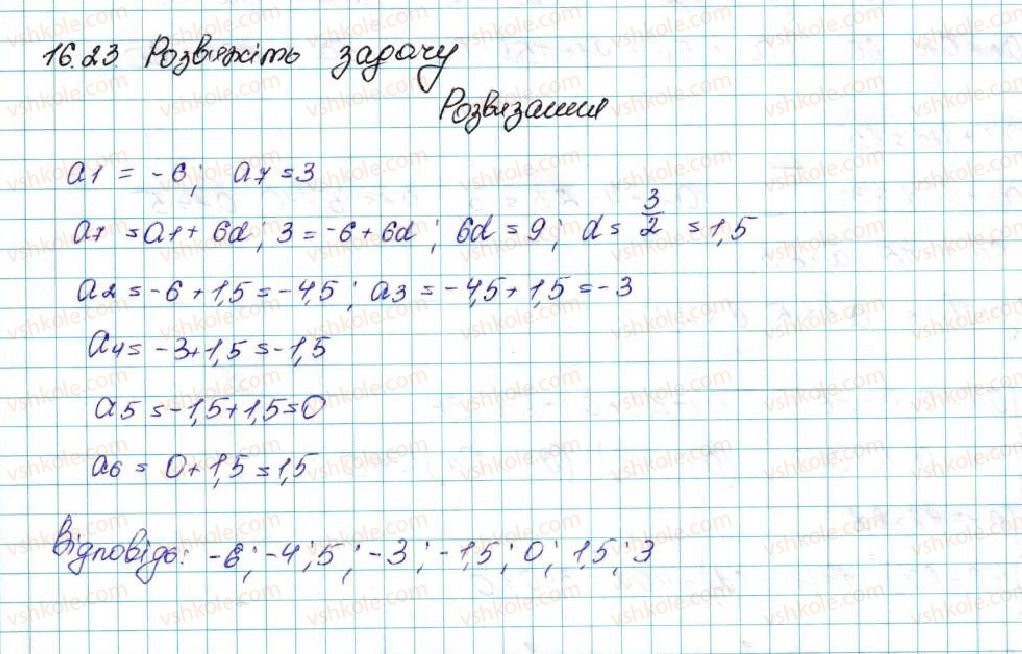 16.23 Розвяжіть задачу
Розвязання
a1 = -6; a7 = 3
a7 = a1 + 6d; 3 = -6 + 6d; 6d = 9; d = 3/2 = 1,5
a2 = -6 + 1,5 = -4,5; a3 = -4,5 + 1,5 = -3
a4 = -3 + 1,5 = -1,5
a5 = -1,5 + 1,5 = 0
a6 = 0 + 1,5 = 1,5
Відповідь: -6; -4;5; -3; -1,5; 0; 1,5; 3